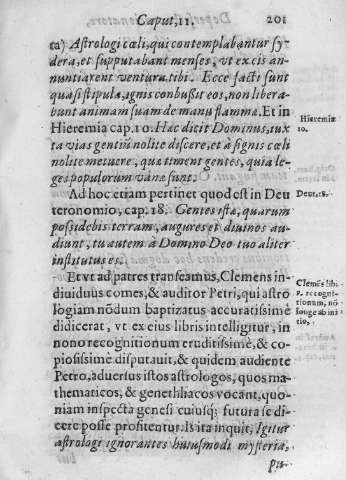 Caput, 11. 201
ta) Astrologi cœli, qui contemplabantur sy-
dera, et supputabant menses, vt ex cis an-
nuntiarent ventura tibi. Ecce facti sunt
quasi stipula, ignis combußit eos, non libera-
bunt animam suam de manu flammæ. Et in
Hieremia cap. 10. Hac dicit Dominus, iux
ta vias gentiũ nolite discere, et à signis cœli
nolite metuere, quæ timent gentes, quia le-
ges populorum vanæ sunt.
Hieremiæ
10.
Ad hoc etiam pertinet quod est in Deu
teronomio, cap. 18. Gentes istæ, quarum
possidebis terram, augures et diuinos au-
diunt, tu autem à Domino Deo tuo aliter
institutus es.
Deut. 18.
Et vt ad patres transeamus, Clemens in-
diuiduus comes, & auditor Petri, qui astro
logiam nõdum baptizatus accuratissimè
didicerat, vt ex eius libris intelligitur, in
nono recognitionum eruditissimè, & co-
piosissimè disputauit, & quidem audiente
Petro, aduersus istos astrologos, quos ma-
thematicos, & genethliacos vocant, quo-
niam inspecta genesi cuiusq; futura se di-
cere posse profitentur. Is ita inquit, Igitur
astrologi ignorantes huiusmodi mysteria,
Clemẽs libr.
9. recogni-
tionum, nõ
longe ab ini
tio,
pu-